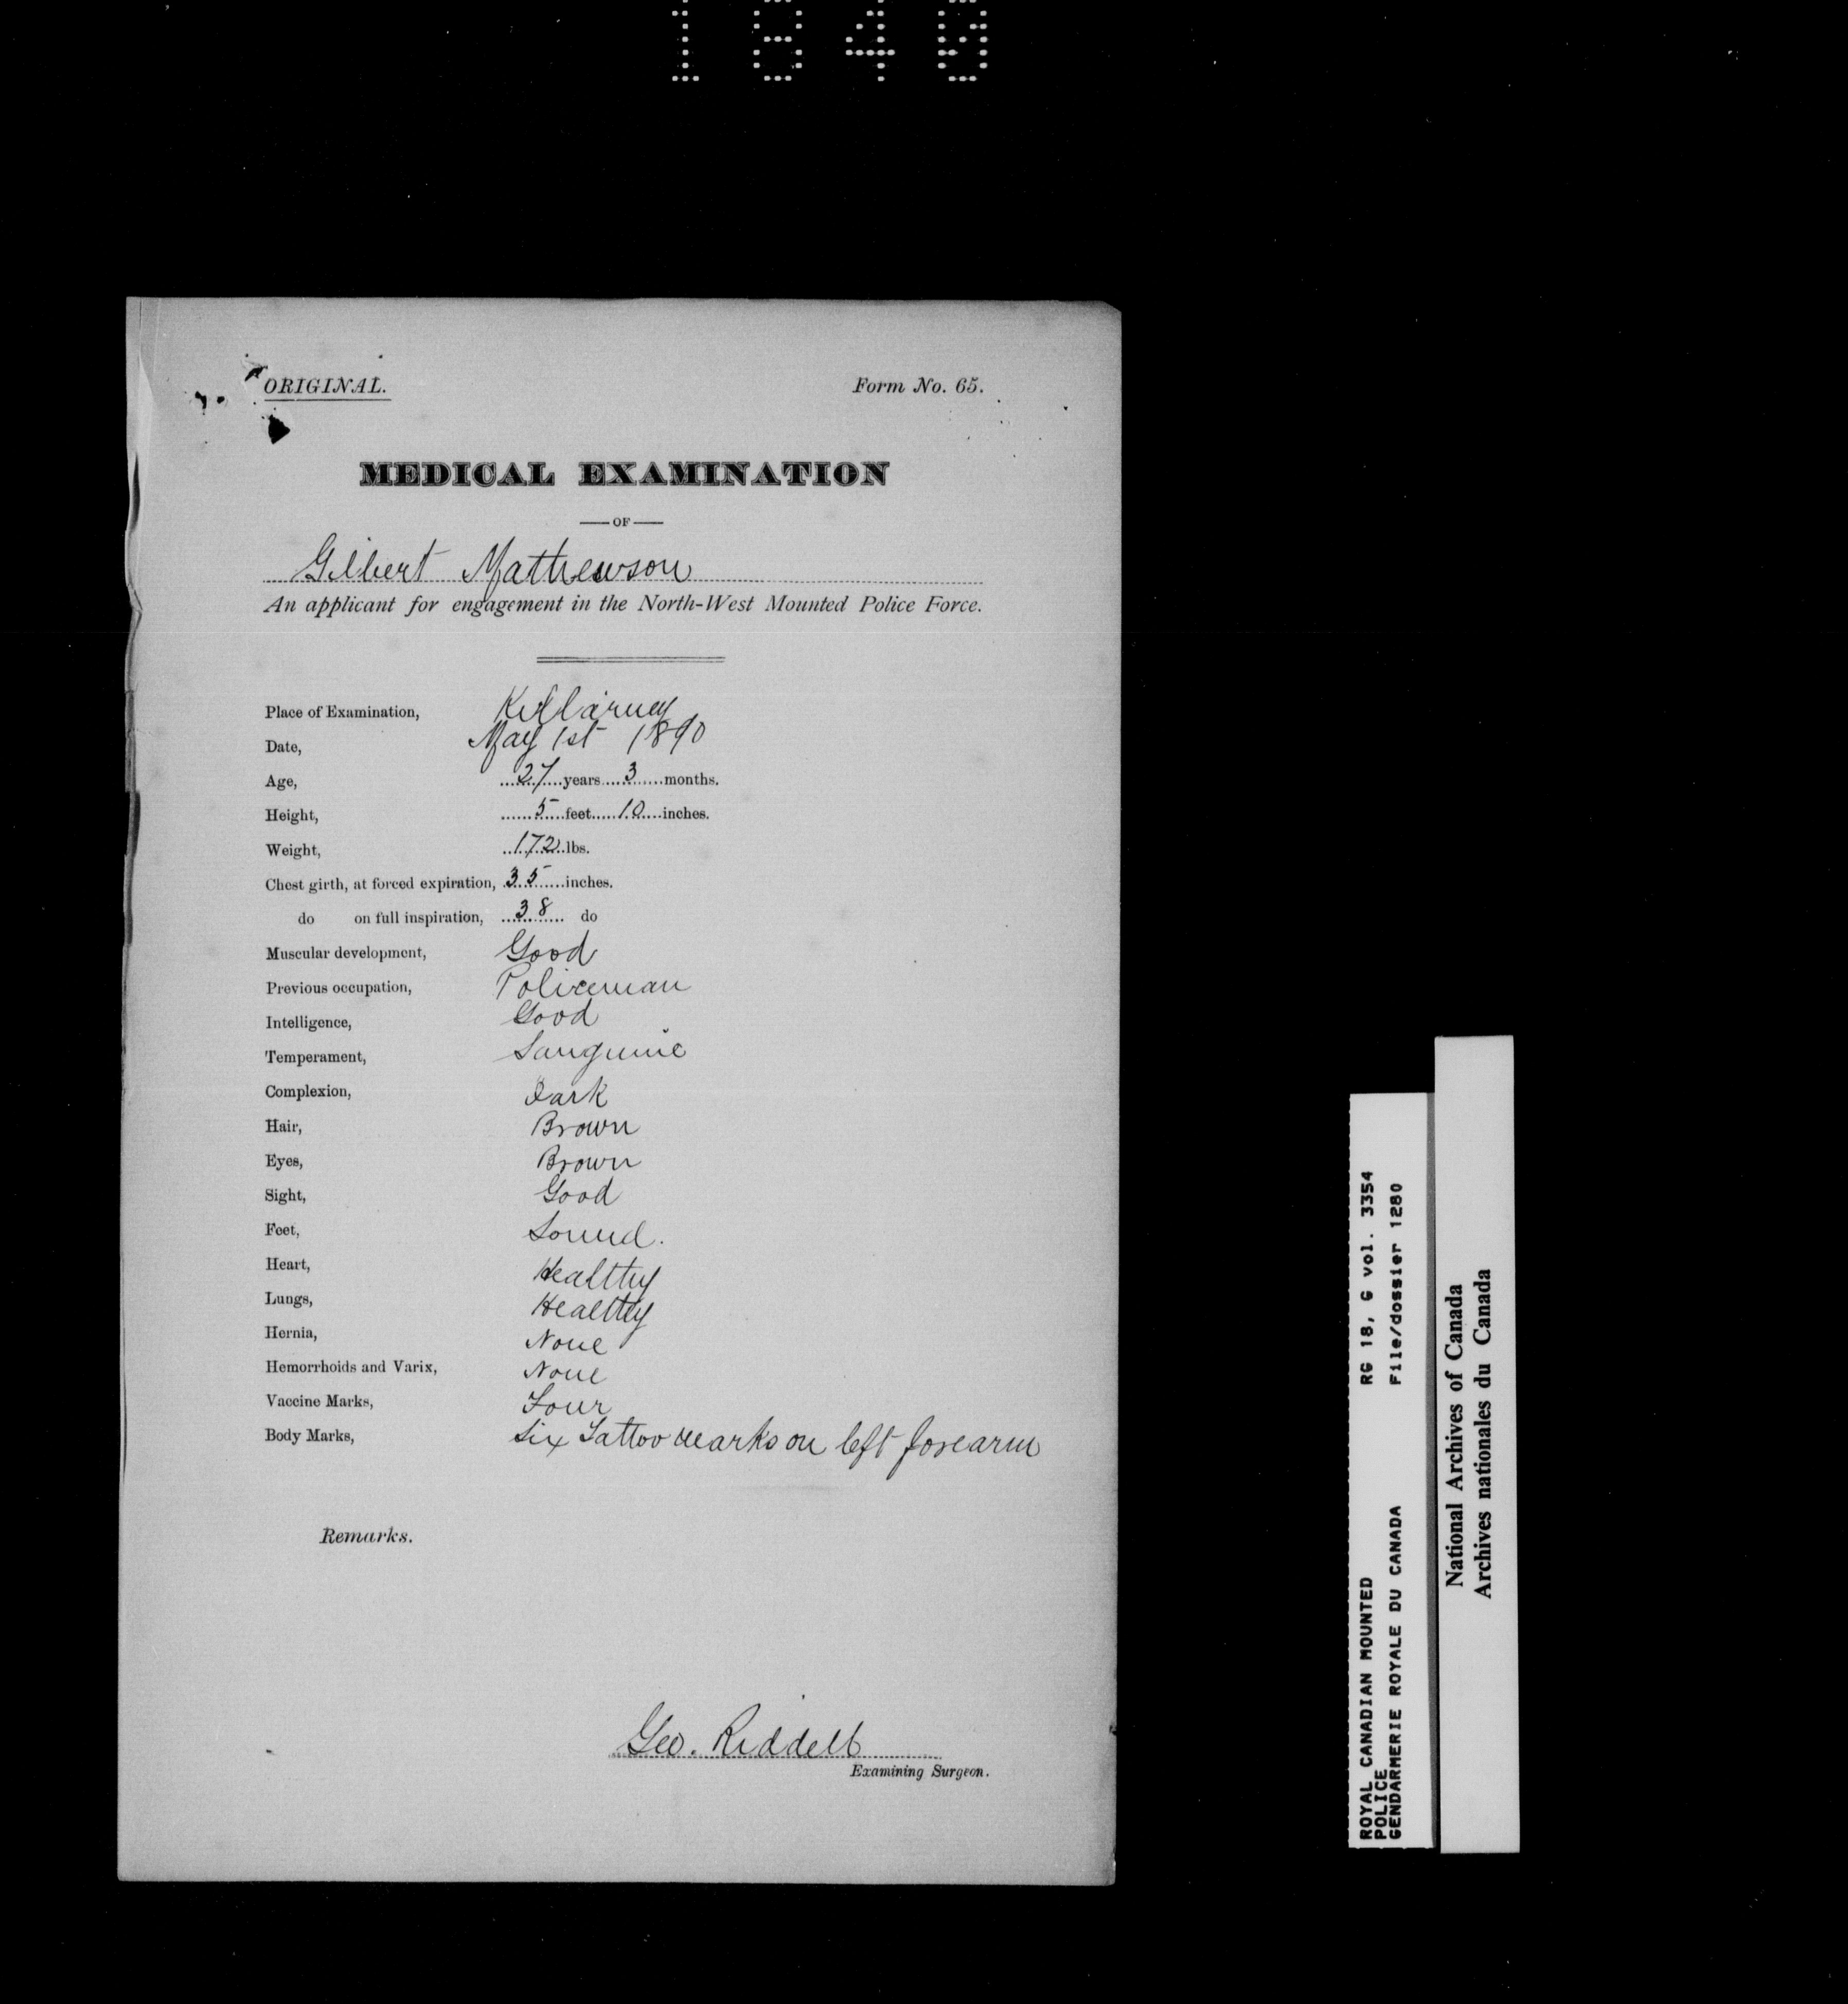 1840
ORIGINAL. Form No. 65.
MEDICAL EXAMINATION
— OF —
Gilbert Mathewson
An applicant for engagement in the North-West Mounted Police Force.
Place of Examination, Killarney
Date, May 1st 1890
Age, 27 years 3 months.
Height, 5 feet 10 inches.
Weight, 172 lbs.
Chest girth, at forced expiration, 35 inches.
do on full inspiration, 38 do
Muscular development, Good
Previous occupation, Policeman
Intelligence, Good
Temperament, Sanguine
Complexion, Dark
Hair, Brown
Eyes, Brown
Sight, Good
Feet, Sound.
Heart, Healthy
Lungs, Healthy
Hernia, None
Hemorrhoids and Varix, None
Vaccine Marks, Four
Body Marks, Six Tattoo marks on left forearm
Remarks.
Geo. Riddell
Examining Surgeon.
ROYAL CANADIAN MOUNTED RG 18, G vol. 3354
POLICE
GENDARMERIE ROYALE DU CANADA File/dossier 1280
National Archives of Canada
Archives nationales du Canada